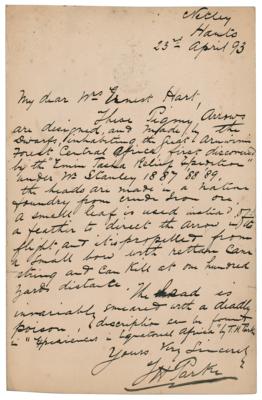 Netley
Hants
23rd April 93
My dear Mrs Ernest Hart,
These Pigmy Arrows
are designed, and made by the
Dwarfs, inhabiting the Great Aruwimi
Forest Central Africa, first discovered
by the "Emin Pasha Relief Expedition"
under Mr Stanley 1887 88 89.
the heads are made in a native
foundry from crude Iron ore.
A small leaf is used instead of
a feather to direct the Arrow in its
flight and it is propelled from
a small bow with rattan cane
string and can kill at one hundred
yards distance. The head is
invariably smeared with a deadly
poison, (description can be found
in "Experiences in Equatorial Africa" by T.H. Parke
Yours Very Sincerely
T H Parke